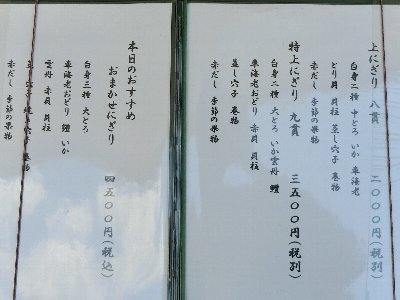 上にぎり 八貫 二〇〇〇円(税別)
白身二種 中とろ いか 車海老
とり貝 貝柱 蒸し穴子 巻物
赤だし 季節の果物
特上にぎり 九貫 三五〇〇円(税別)
白身二種 大とろ いか 雲丹 鱧
車海老おどり 赤貝 貝柱
蒸し穴子 巻物
赤だし 季節の果物
本日のおすすめ
おまかせにぎり 四五〇〇円(税込)
白身三種 大とろ
車海老おどり 鱧 いか
雲丹 赤貝 貝柱
穴子 巻物
赤だし 季節の果物